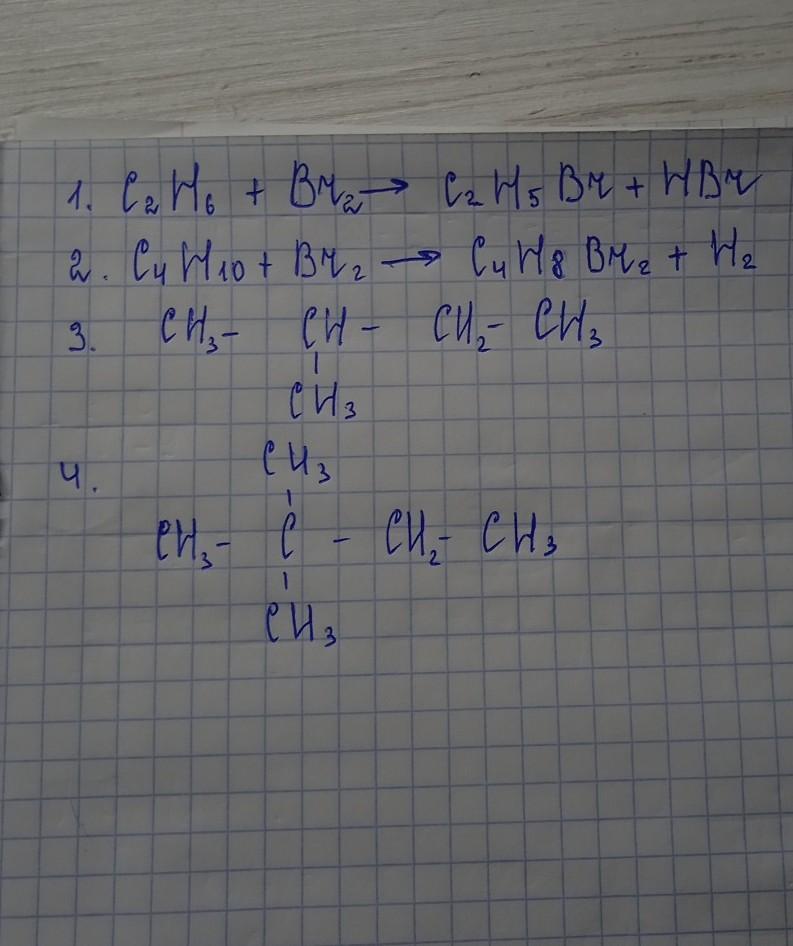 1. C₂H₆ + Br₂ → C₂H₅Br + HBr
2. C₄H₁₀ + Br₂ → C₄H₈Br₂ + H₂
3. CH₃- CH - CH₂- CH₃
|
CH₃
4. CH₃
|
CH₃- C - CH₂- CH₃
|
CH₃